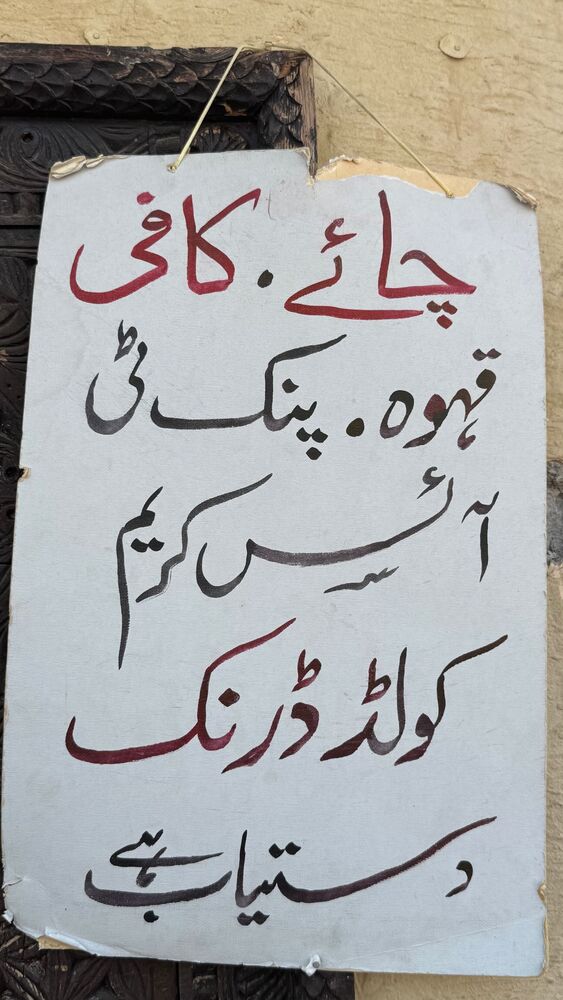 چائے . کافی
قہوہ . پنک ٹی
آئس کریم
کولڈ ڈرنک
دستیاب ہے